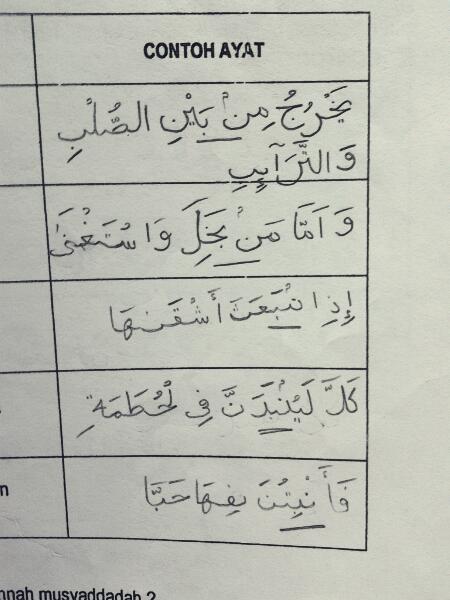 CONTOH AYAT
يَخْرُجُ مِنْ بَيْنِ الصُّلْبِ
وَالتَّرَآىِٕبِ
وَاَمَّا مَنْ بَخِلَ وَاسْتَغْنَىٰ
إِذِ انْبَعَثَ أَشْقَىهَا
كَلَّ لَيُنْبَذَنَّ فِي لْحُطَمَةِ
فَأَنْبِتْنَ فِهَا حَبًّا
n
nnah musyaddadah ?